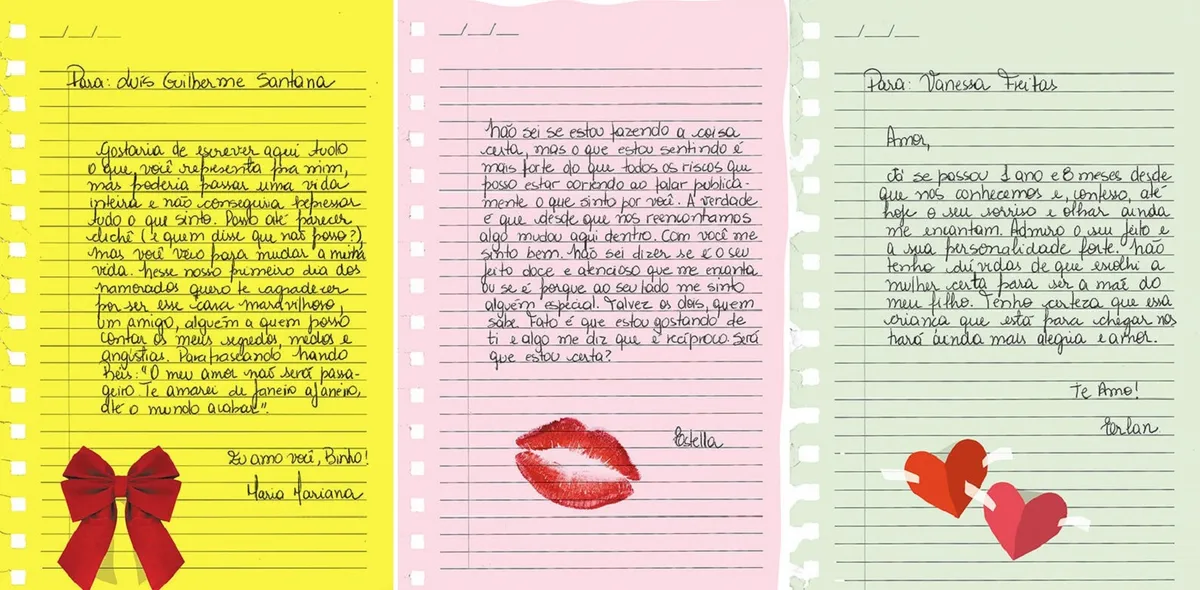 __/__/__
Para: Luis Guilherme Santana
Gostaria de escrever aqui tudo
o que você representa pra mim,
mas poderia passar uma vida
inteira e não conseguiria expressar
tudo o que sinto. Posso até parecer
clichê (e quem disse que não posso?)
mas você veio para mudar a minha
vida. Nesse nosso primeiro dia dos
namorados quero te agradecer
por ser esse cara maravilhoso,
um amigo, alguém a quem posso
contar os meus segredos, medos e
angústias. Parafraseando Nando
Reis: "O meu amor não será passa-
geiro. Te amarei de janeiro a janeiro,
até o mundo acabar".
Eu amo você, Binho!
Maria Mariana
__/__/__
Não sei se estou fazendo a coisa
certa, mas o que estou sentindo é
mais forte do que todos os riscos que
posso estar correndo ao falar publica-
mente o que sinto por você. A verdade
é que desde que nos reencontamos
algo mudou aqui dentro. Com você me
sinto bem. Não sei dizer se é o seu
jeito doce e atencioso que me encanta
ou se é porque ao seu lado me sinto
alguém especial. Talvez os dois, quem
sabe. Fato é que estou gostando de
ti e algo me diz que é recíproco. Será
que estou certa?
Estella
__/__/__
Para: Vanessa Freitas
Amor,
Já se passou 1 ano e 8 meses desde
que nos conhecemos e, confesso, até
hoje o seu sorriso e olhar ainda
me encantam. Admiro o seu jeito e
a sua personalidade forte. Não
tenho dúvidas de que escolhi a
mulher certa para ser a mãe do
meu filho. Tenho certeza que essa
criança que está para chegar nos
trará ainda mais alegria e amor.
Te Amo!
Erlan